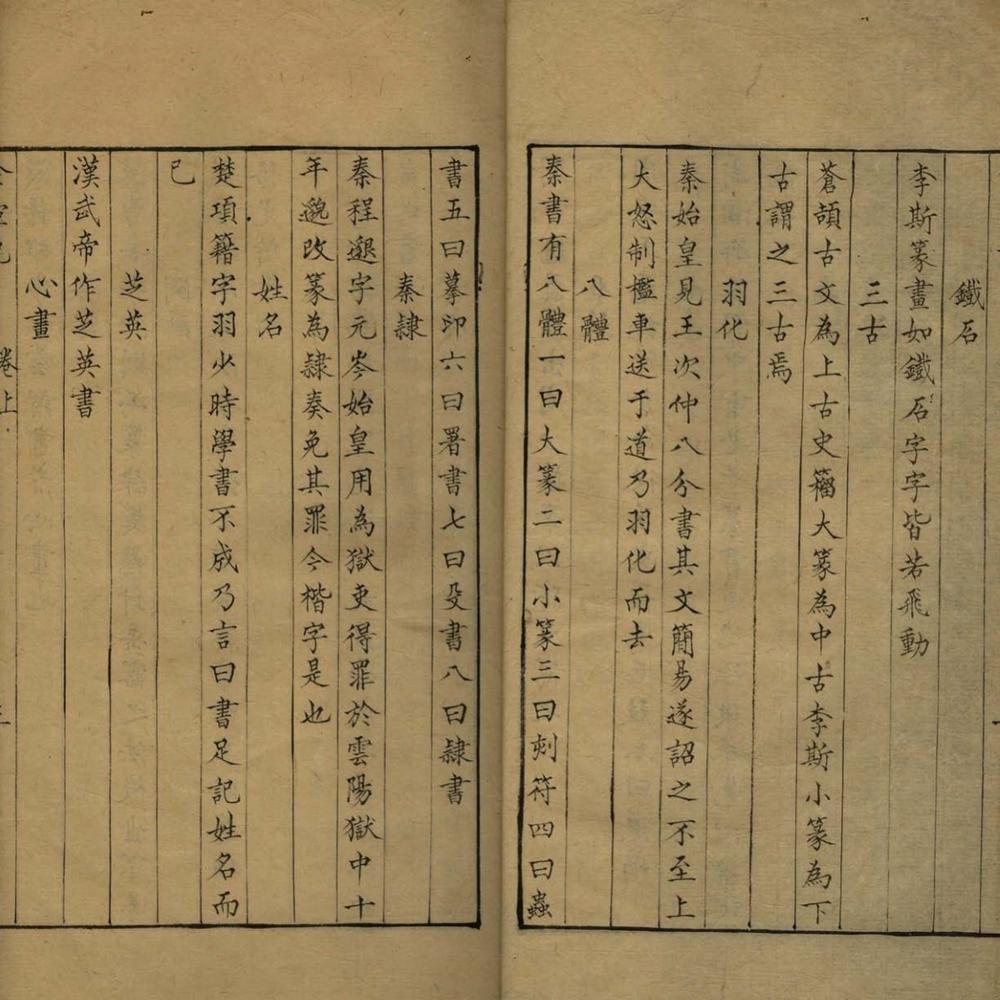 鐵石
李斯篆畫如鐵石字字皆若飛動
三古
蒼頡古文為上古史籀大篆為中古李斯小篆為下
古謂之三古焉
羽化
秦始皇見王次仲八分書其文簡易遂詔之不至上
大怒制檻車送于道乃羽化而去
八體
秦書有八體一曰大篆二曰小篆三曰刻符四曰蟲
書五曰摹印六曰署書七曰殳書八曰隸書
秦隸
秦程邈字元岑始皇用為獄吏得罪於雲陽獄中十
年邈改篆為隸奏免其罪今楷字是也
姓名
楚項籍字羽少時學書不成乃言曰書足記姓名而
已
芝英
漢武帝作芝英書
心畫
卷上